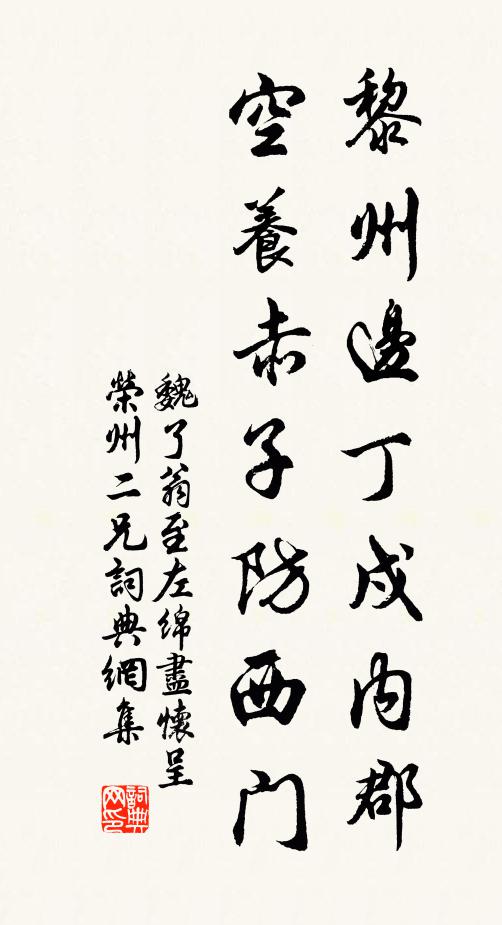 黎州邊丁戍內郡
空養赤子防西門
魏了翁至左綿盡懷呈
榮州二兄詞典網集
詞典
网印